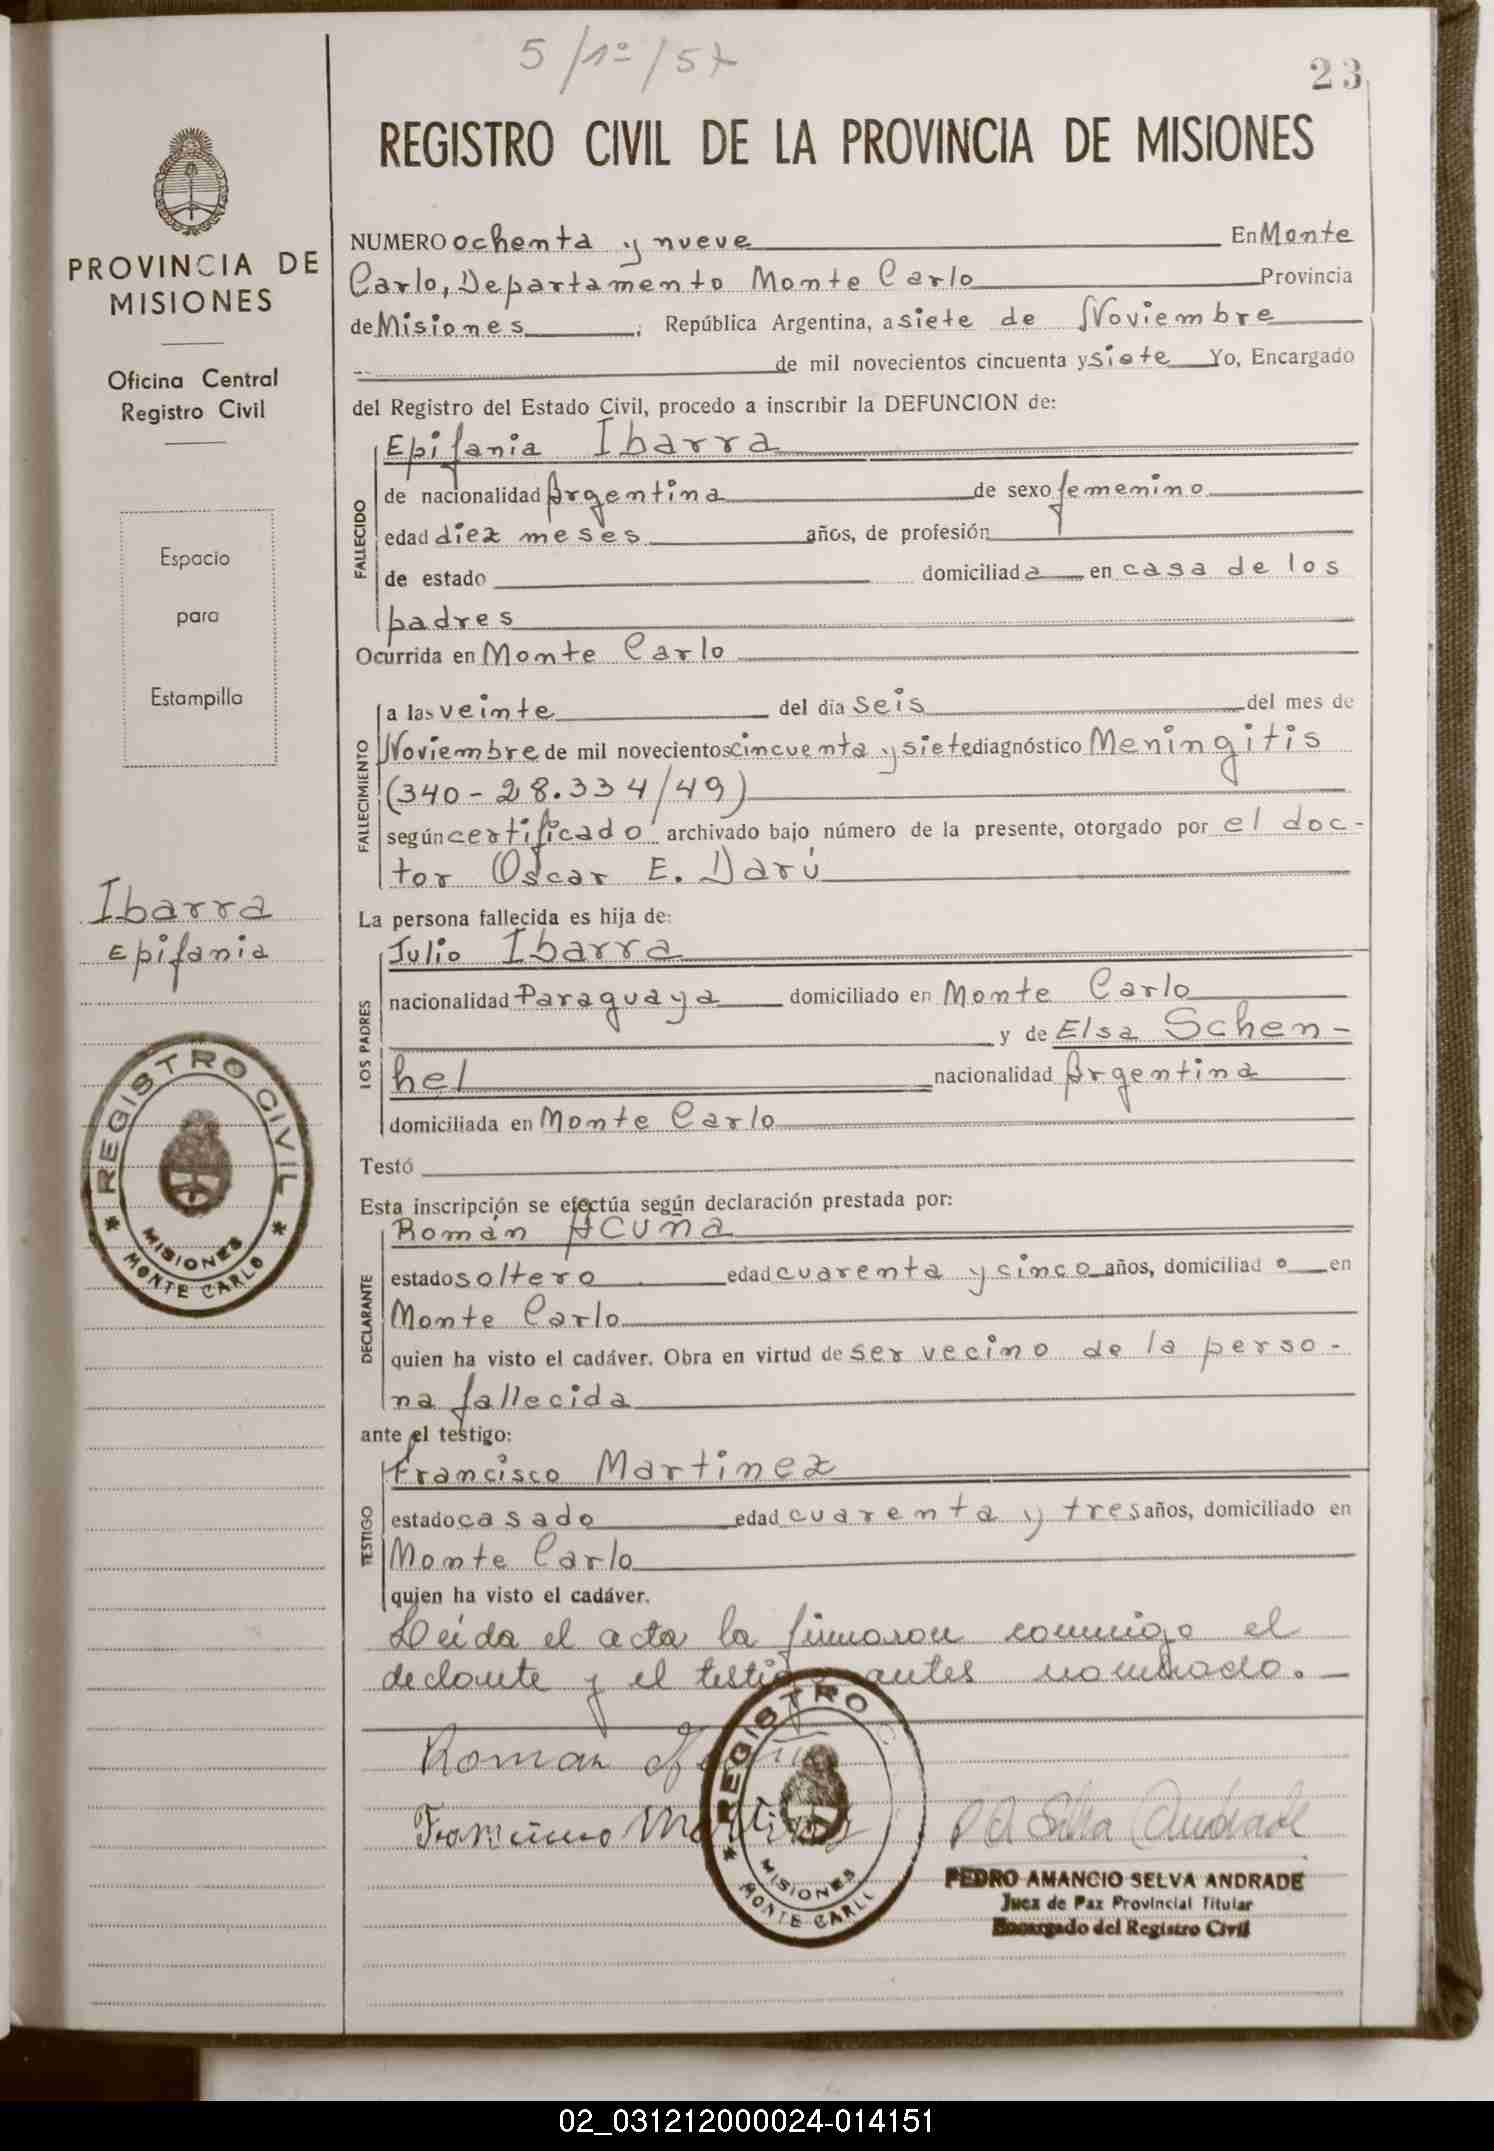 5/1º/57
23
REGISTRO CIVIL DE LA PROVINCIA DE MISIONES
PROVINCIA DE
MISIONES
Oficina Central
Registro Civil
Espacio
para
Estampilla
Ibarra
Epifania
REGISTRO CIVIL
MISIONES
* MONTE CARLO *
NUMERO ochenta y nueve En Monte
Carlo, Departamento Monte Carlo Provincia
de Misiones, República Argentina, a siete de Noviembre
de mil novecientos cincuenta y siete Yo, Encargado
del Registro del Estado Civil, procedo a inscribir la DEFUNCION de:
FALLECIDO
Epifania Ibarra
de nacionalidad Argentina de sexo femenino
edad diez meses años, de profesión
de estado domiciliada en casa de los
padres
Ocurrida en Monte Carlo
FALLECIMIENTO
a las veinte del día seis del mes de
Noviembre de mil novecientos cincuenta y siete diagnóstico Meningitis
(340-28.334/49)
según certificado archivado bajo número de la presente, otorgado por el doc-
tor Oscar E. Darú
La persona fallecida es hija de:
LOS PADRES
Julio Ibarra
nacionalidad Paraguaya domiciliado en Monte Carlo
y de Elsa Schen-
hel nacionalidad Argentina
domiciliada en Monte Carlo
Testó
Esta inscripción se efectúa según declaración prestada por:
DECLARANTE
Román Acuña
estado soltero edad cuarenta y cinco años, domiciliado en
Monte Carlo
quien ha visto el cadáver. Obra en virtud de ser vecino de la perso-
na fallecida
ante el testigo:
TESTIGO
Francisco Martinez
estado casado edad cuarenta y tres años, domiciliado en
Monte Carlo
quien ha visto el cadáver.
Leida el acta la firmaron conmigo el
declante y el testigo antes nombrado.-
Roman
Francisco Martinez
REGISTRO C
MISIONES
* MONTE CARL
P A Selva Andrade
PEDRO AMANCIO SELVA ANDRADE
Juez de Paz Provincial Titular
Encargado del Registro Civil
02_031212000024-014151